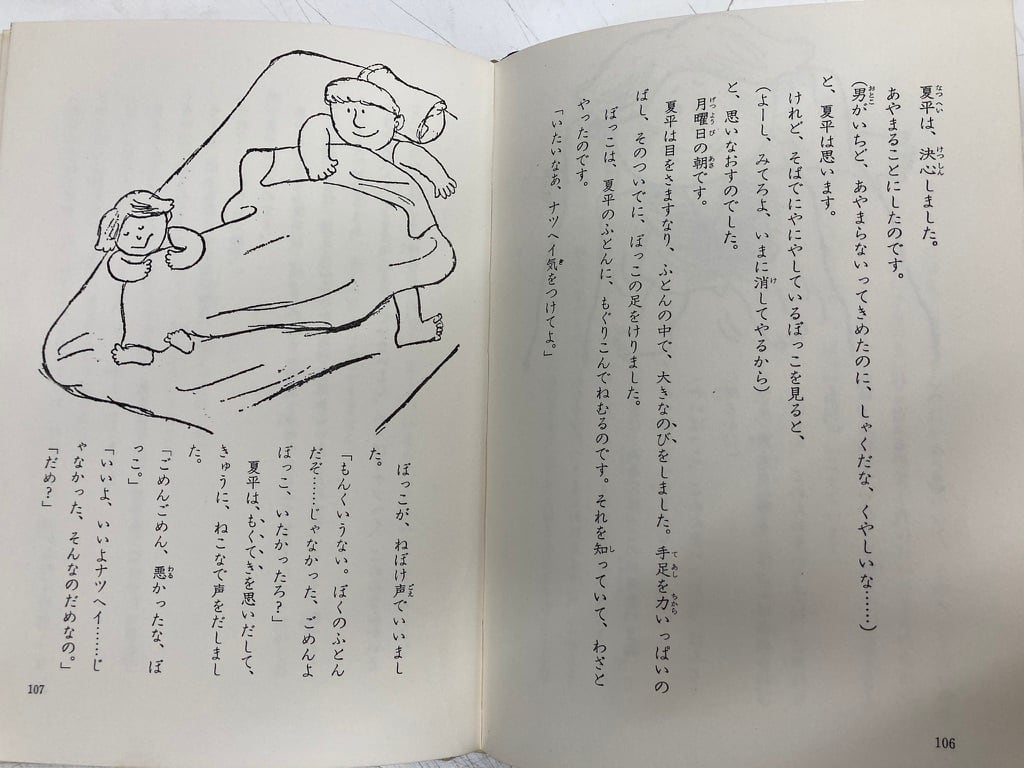 夏平は、決心しました。
あやまることにしたのです。
(男がいちど、あやまらないってきめたのに、しゃくだな、くやしいな……)
と、夏平は思います。
けれど、そばでにやにやしているぼっこを見ると、
(よーし、みてろよ、いまに消してやるから)
と、思いなおすのでした。
月曜日の朝です。
夏平は目をさますなり、ふとんの中で、大きなのびをしました。手足を力いっぱいの
ばし、そのついでに、ぼっこの足をけりました。
ぼっこは、夏平のふとんに、もぐりこんでねむるのです。それを知っていて、わざと
やったのです。
「いたいなあ、ナツヘイ気をつけてよ。」
106
ぼっこが、ねぼけ声でいいまし
た。
「もんくいうない。ぼくのふとん
だぞ……じゃなかった、ごめんよ
ぼっこ、いたかったろ?」
夏平は、もくてきを思いだして、
きゅうに、ねこなで声をだしまし
た。
「ごめんごめん、悪かったな、ぼ
っこ。」
「いいよ、いいよナツヘイ……じ
ゃなかった、そんなのだめなの。」
「だめ?」
107